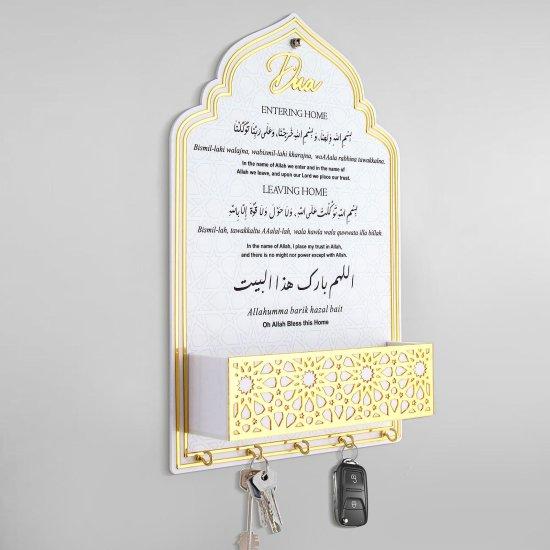 Dua
ENTERING HOME
بِسْمِ اللهِ وَلَجْنَا، وَبِسْمِ اللهِ خَرَجْنَا، وَعَلَى رَبِّنَا تَوَكَّلْنَا
Bismil-lahi walajna, wabismil-lahi kharajna, waAAala rabbina tawakkalna.
In the name of Allah we enter and in the name of
Allah we leave, and upon our Lord we place our trust.
LEAVING HOME
بِسْمِ اللهِ تَوَكَّلْتُ عَلَى اللهِ، وَلَا حَوْلَ وَلَا قُوَّةَ إِلَّا بِاللهِ
Bismil-lah, tawakkaltu AAalal-lah, wala hawla wala quwwata illa billah
In the name of Allah, I place my trust in Allah,
and there is no might nor power except with Allah.
اللهم بارك هذا البيت
Allahumma barik hazal bait
Oh Allah Bless this Home